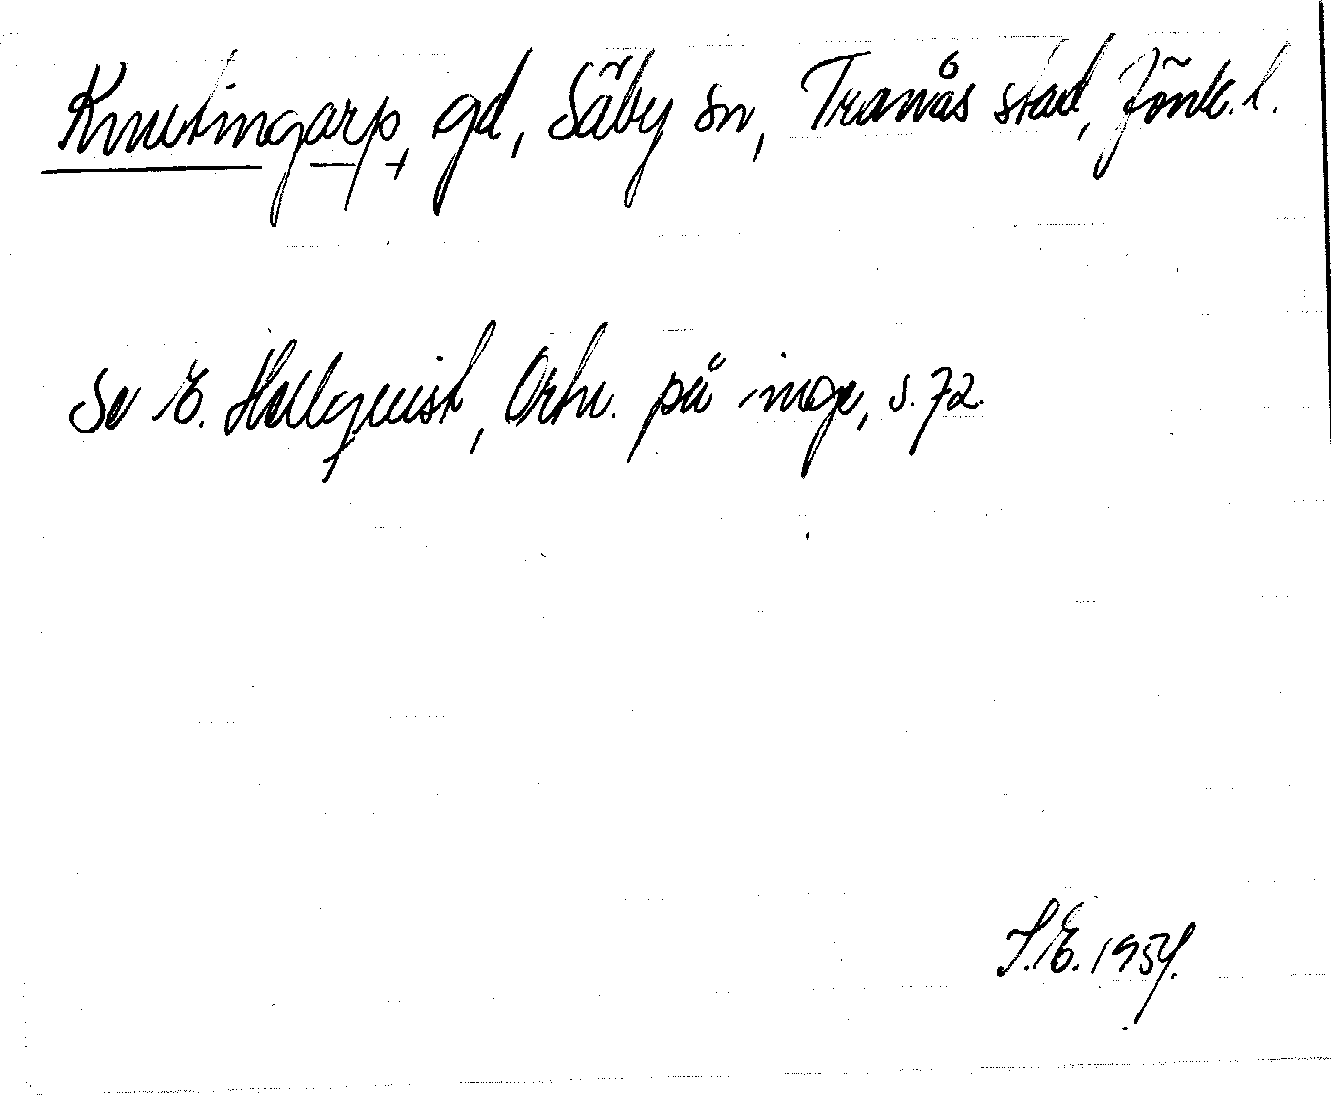 Knutingarp, gd, Säby sn, Tranås stad, Jönk. l.
Se E. Hellquist, Ortn. på inge, s. 72.
S.E. 1954.